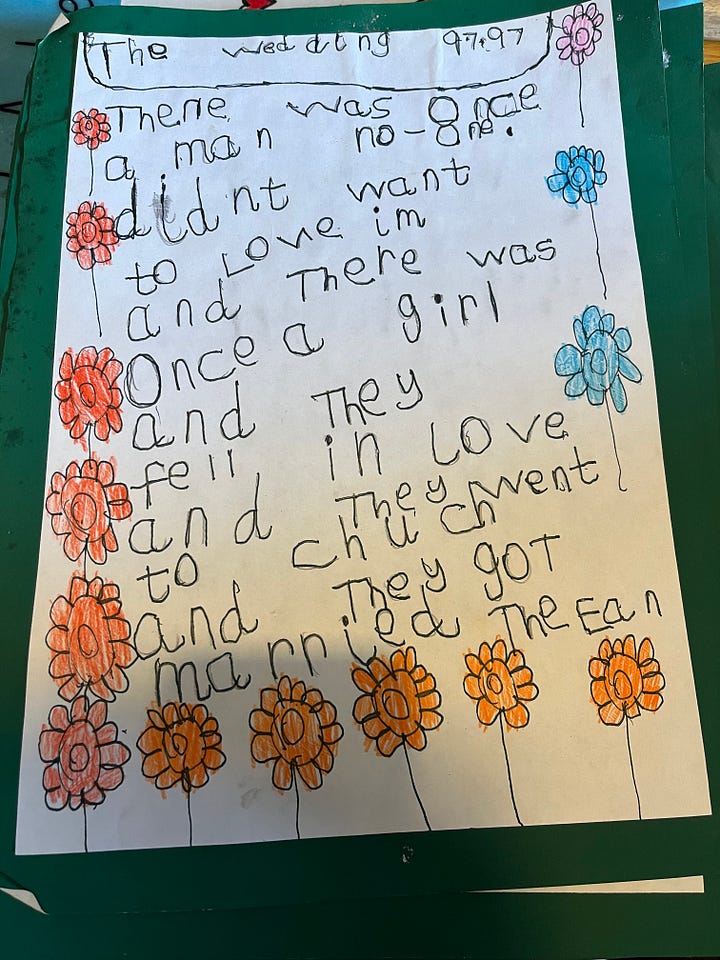 The wedding 97.97
There was Once
a man no-One.
didn't want
to Love im
and There was
Once a girl
and They
fell in Love
and They went
to chuch
and They got
married The Ean